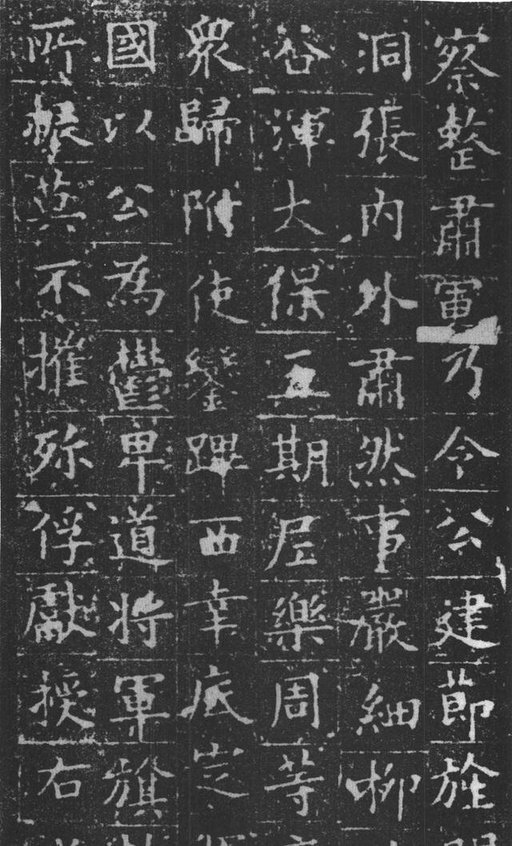 察整肅軍乃令公建節旌
洞張內外肅然事嚴細柳
谷渾大保五期尼樂周等
眾歸附使鑾蹕西幸底定
國以公為鬱卑道將軍旗
所帳莫不摧殄俘獻授右